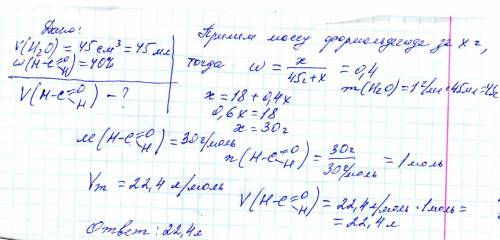 Дано:
V(H₂O) = 45 см³ = 45 мл
ω(H-C=O H) = 40%
V(H-C=O H) - ?
Примем массу формальдегида за x г,
тогда ω = x / 45+x = 0,4
m(H₂O) = 1 г/мл · 45 мл = 45г
x = 18 + 0,4x
0,6x = 18
x = 30г
M(H-C=O H) = 30 г/моль
n(H-C=O H) = 30г / 30 г/моль = 1 моль
Vm = 22,4 л/моль
V(H-C=O H) = 22,4 л/моль · 1 моль =
= 22,4 л
Ответ: 22,4 л